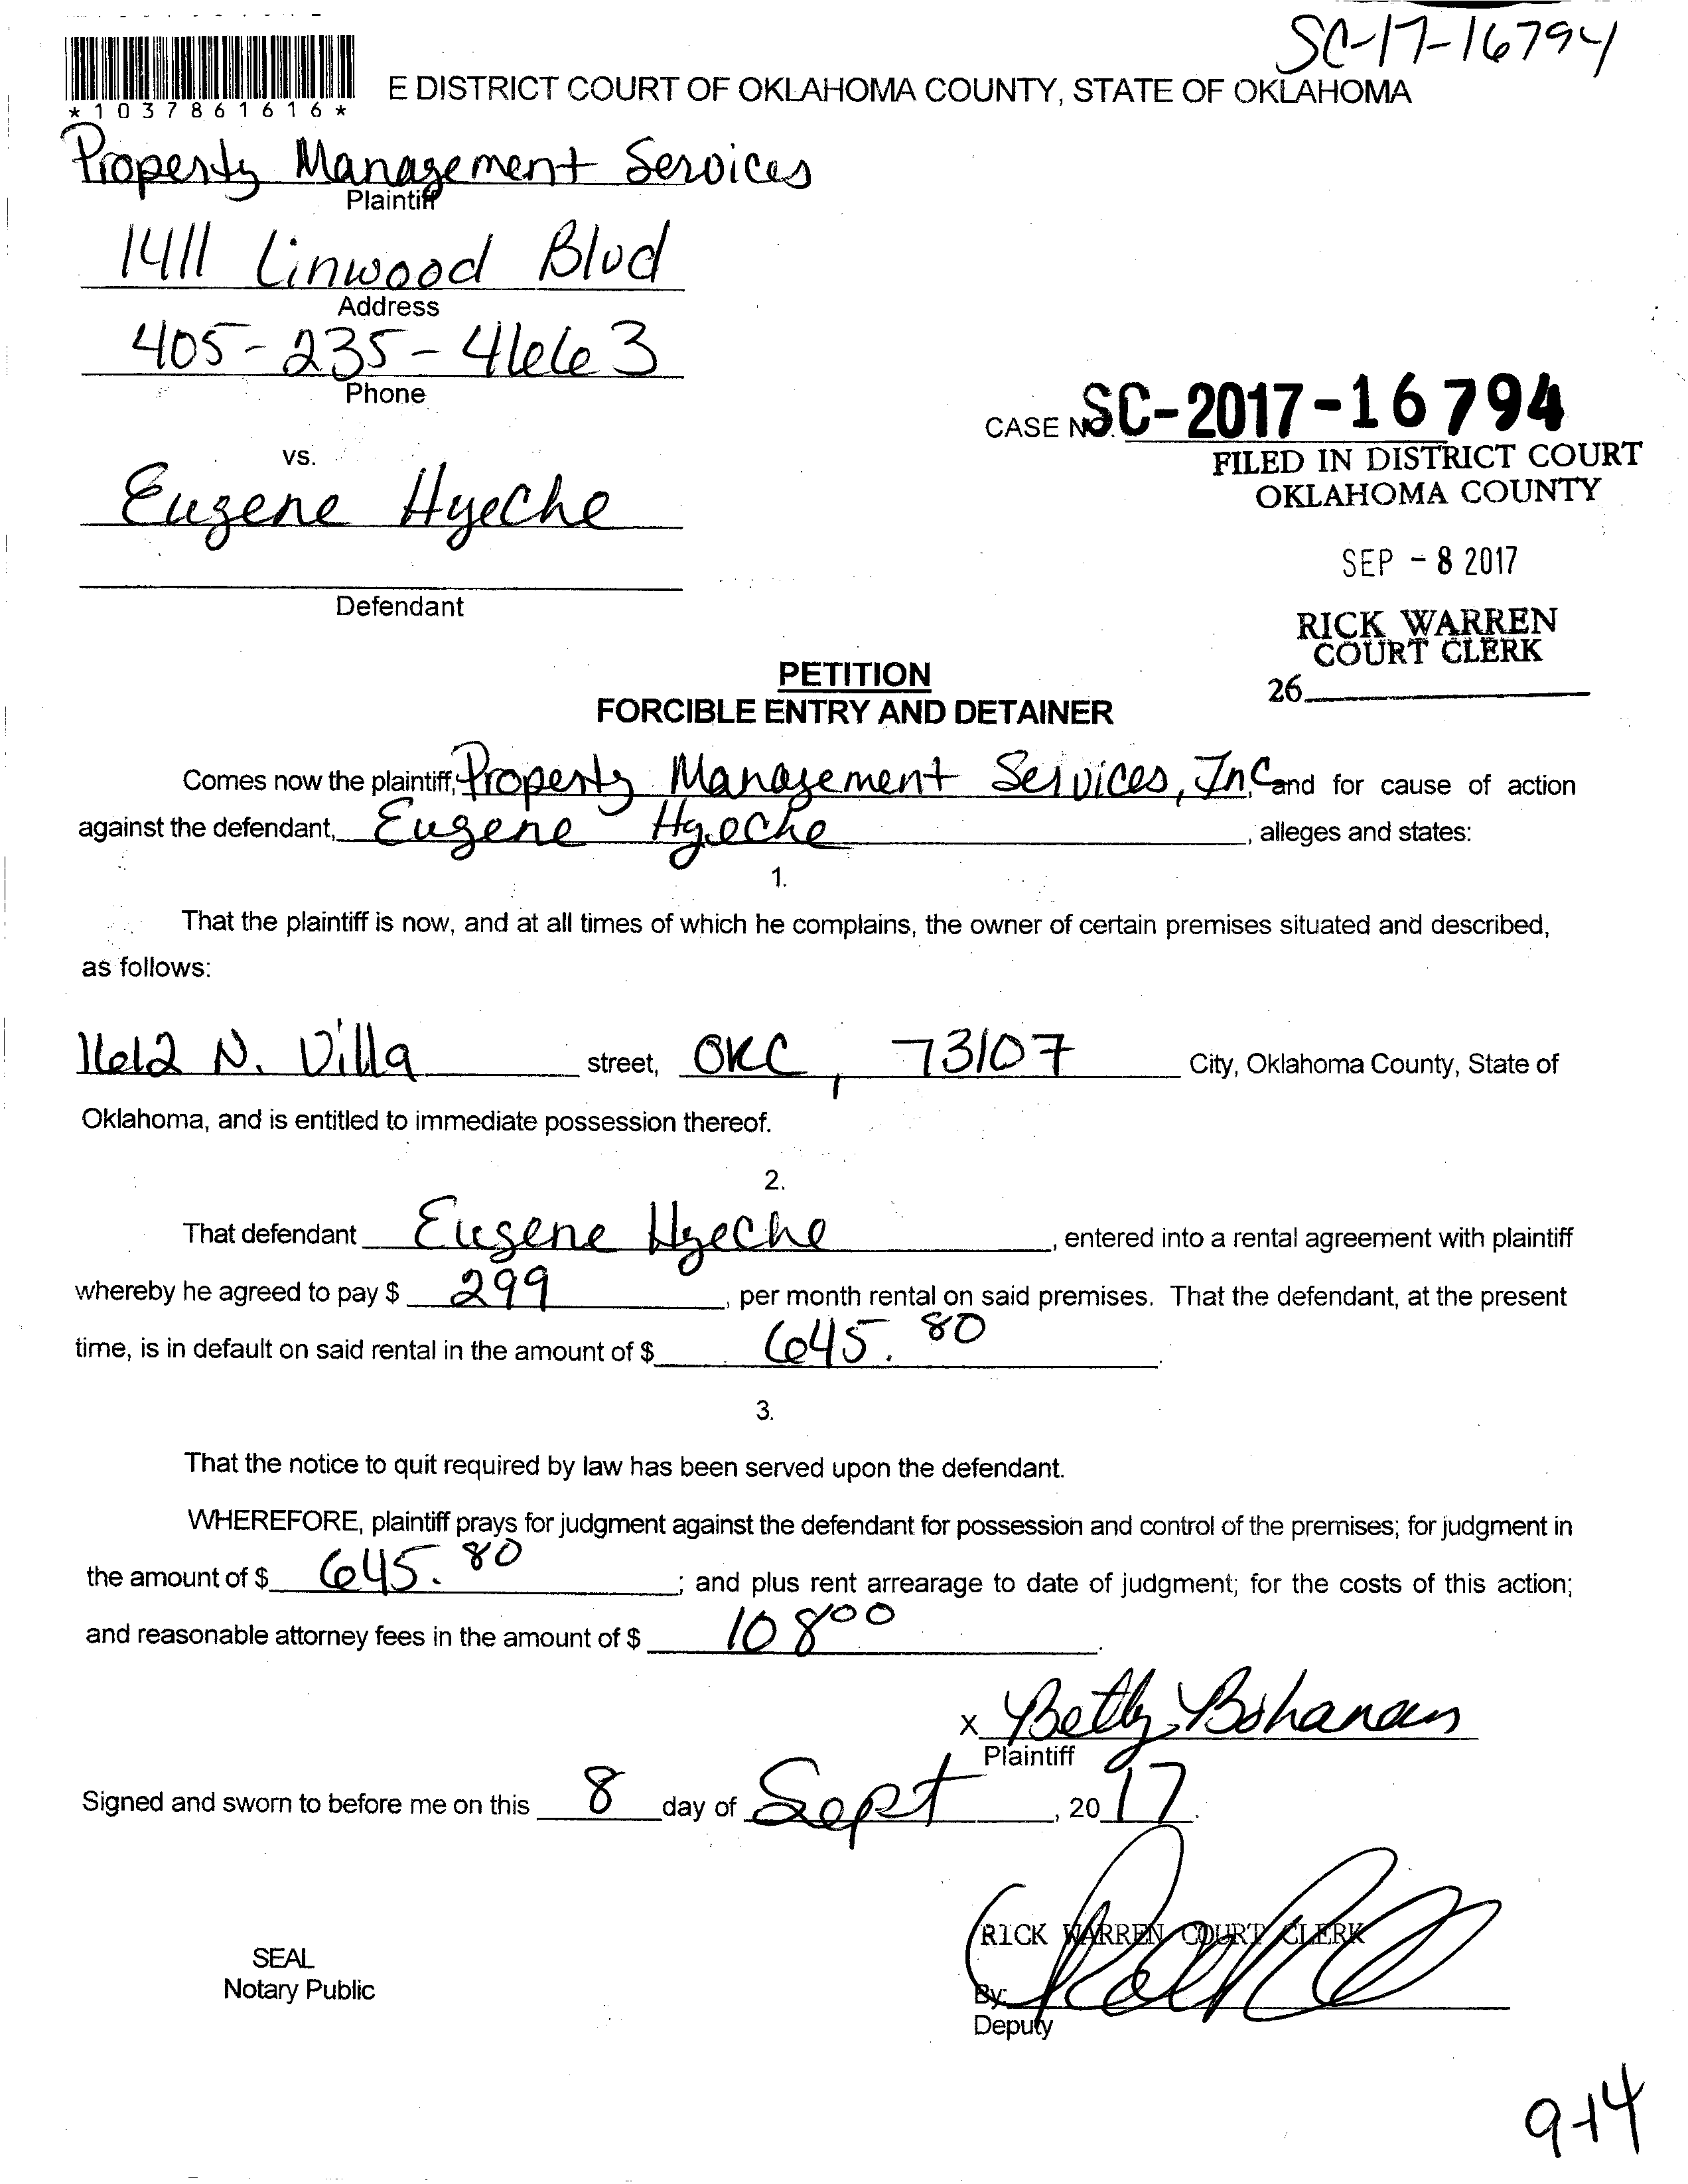 SC-17-16794
*1037861616*
E DISTRICT COURT OF OKLAHOMA COUNTY, STATE OF OKLAHOMA
Property Management Services
Plaintiff
1411 Linwood Blvd
Address
405-235-4663
Phone
CASE NO. SC-2017-16794
FILED IN DISTRICT COURT
OKLAHOMA COUNTY
vs.
Eugene Hyeche
SEP - 8 2017
Defendant
RICK WARREN
COURT CLERK
26
PETITION
FORCIBLE ENTRY AND DETAINER
Comes now the plaintiff, Property Management Services, Inc. and for cause of action
against the defendant, Eugene Hyeche, alleges and states:
1.
That the plaintiff is now, and at all times of which he complains, the owner of certain premises situated and described,
as follows:
1612 N. Villa street, OKC, 73107 City, Oklahoma County, State of
Oklahoma, and is entitled to immediate possession thereof.
2.
That defendant Eugene Hyeche, entered into a rental agreement with plaintiff
whereby he agreed to pay $ 299, per month rental on said premises. That the defendant, at the present
time, is in default on said rental in the amount of $ 645.80.
3.
That the notice to quit required by law has been served upon the defendant.
WHEREFORE, plaintiff prays for judgment against the defendant for possession and control of the premises; for judgment in
the amount of $ 645.80; and plus rent arrearage to date of judgment; for the costs of this action;
and reasonable attorney fees in the amount of $ 108 00.
x Betty Bohanan
Plaintiff
Signed and sworn to before me on this 8 day of Sept, 20 17.
RICK WARREN COURT CLERK
SEAL
Notary Public
By:
Deputy
9-14